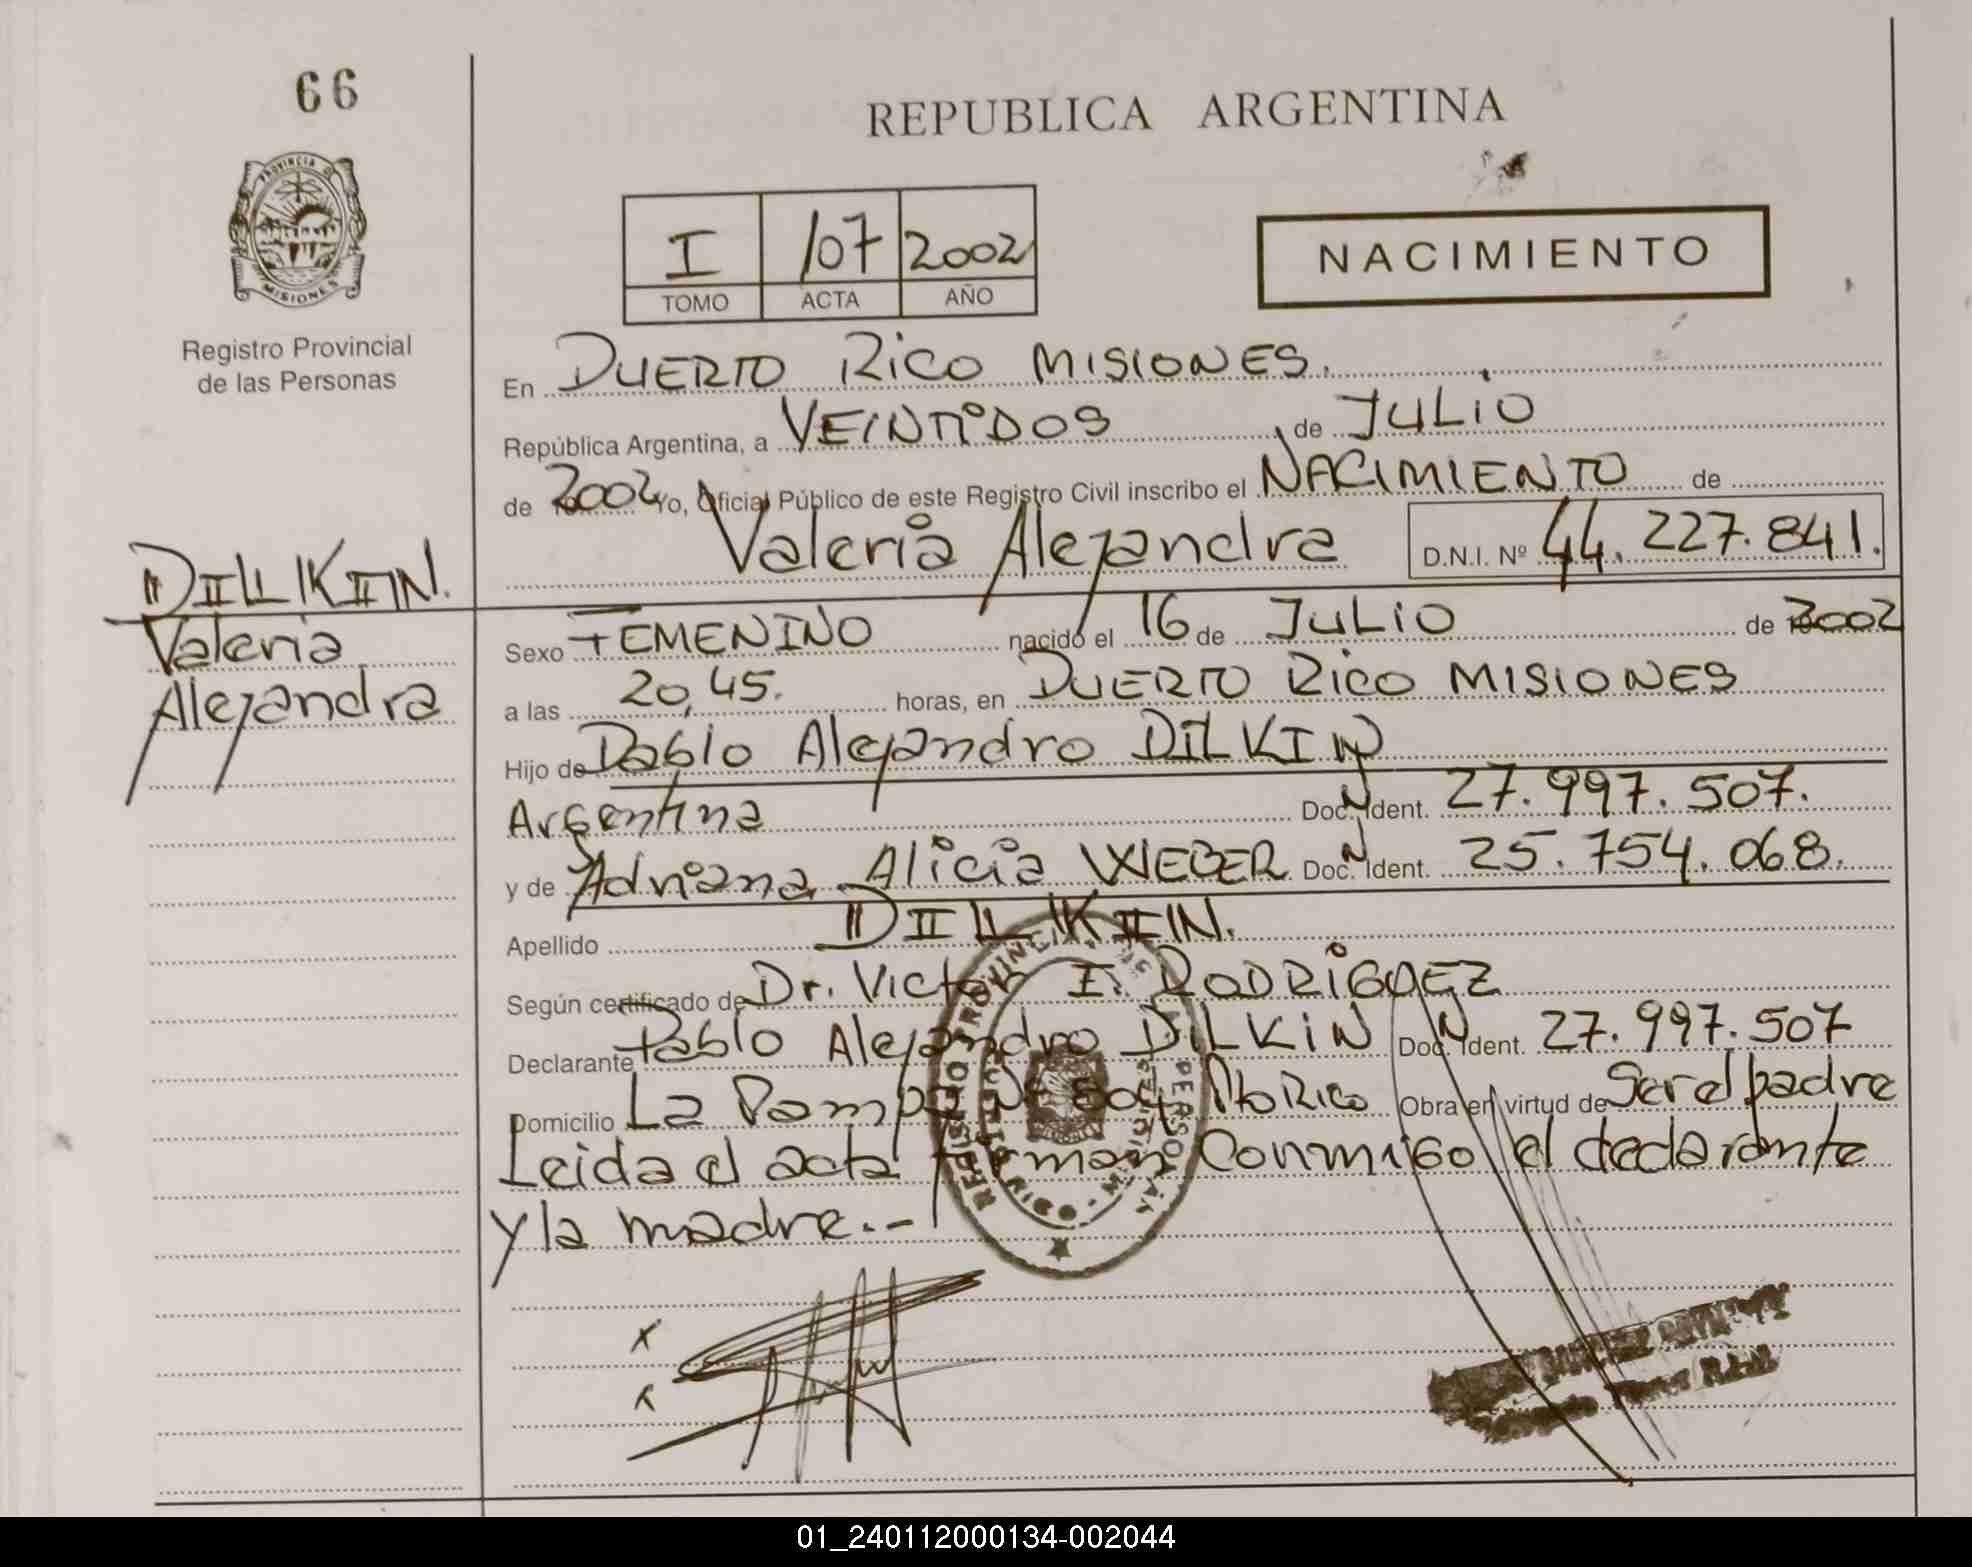 66
REPUBLICA ARGENTINA
PROVINCIA D
MISIONES
Registro Provincial
de las Personas
I 107 2002
TOMO ACTA AÑO
NACIMIENTO
En PUERTO RICO MISIONES.
República Argentina, a VEINTIDOS de JULIO
de 2002 Yo, Oficial Público de este Registro Civil inscribo el NACIMIENTO de
Valeria Alejandra D.N.I. Nº 44.227.841.
DILKIN.
Valeria
Alejandra
Sexo FEMENINO nacido el 16 de JULIO de 2002
a las 20,45. horas, en PUERTO RICO MISIONES
Hijo de Pablo Alejandro DILKIN
Argentina Doc. N Ident. 27.997.507.
y de Adriana Alicia WEBER Doc. N Ident. 25.754.068.
Apellido DILKIN.
Según certificado de Dr. Victor I. RODRIGUEZ
Declarante Pablo Alejandro DILKIN Doc. N Ident. 27.997.507
Domicilio La Pampa Nº 804 Pto Rico Obra en virtud de Ser el padre
Leida el acta firman Conmigo el declarante
y la madre.-
X
X
01_240112000134-002044